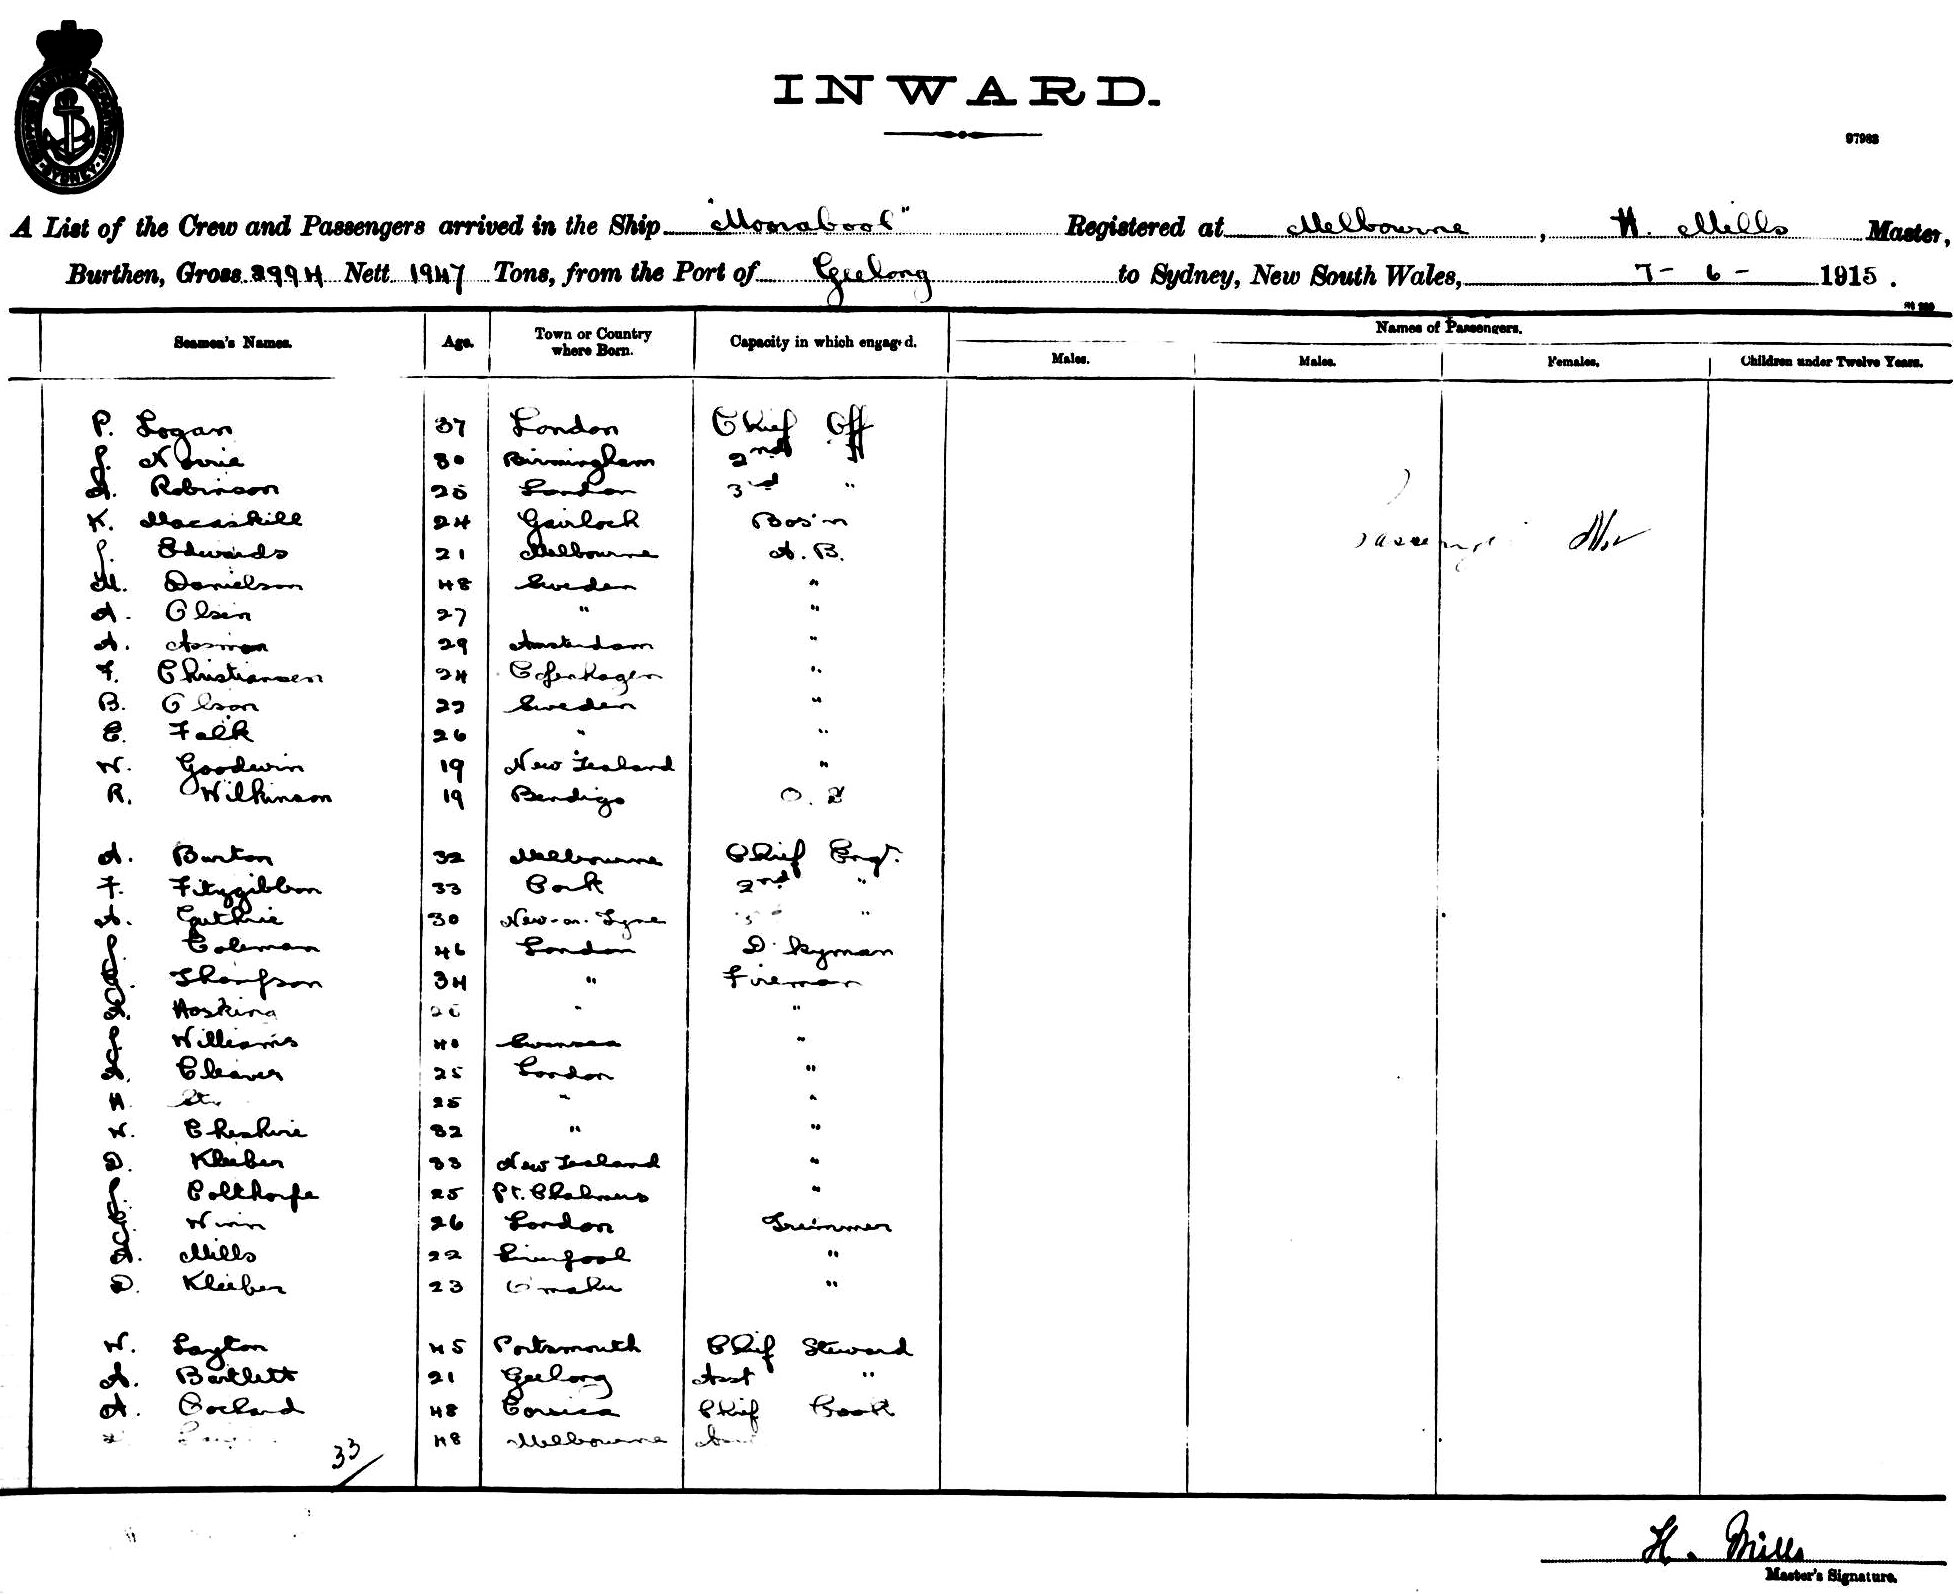 INWARD.
97963
A List of the Crew and Passengers arrived in the Ship "Moorabool" Registered at Melbourne, H. Mills Master,
Burthen, Gross 2994 Nett 1947 Tons, from the Port of Geelong to Sydney, New South Wales, 7-6-1915.
Seamen's Names. Age. Town or Country where Born. Capacity in which engaged. Names of Passengers.
Males. Males. Females. Children under Twelve Years.
P. Logan 37 London Chief Off
J. Norrie 30 Birmingham 2nd "
A. Robinson 25 London 3rd "
K. Macaskill 24 Gairloch Bos'n
J. Edwards 21 Melbourne A.B.
M. Danielson 48 Sweden "
A. Olsen 27 " "
A. Assman 29 Amsterdam "
F. Christiansen 24 Copenhagen "
B. Olson 22 Sweden "
E. Falk 26 " "
W. Goodwin 19 New Zealand "
R. Wilkinson 19 Bendigo O.S
A. Burton 32 Melbourne Chief Engr.
F. Fitzgibbon 33 Cork 2nd "
A. Guthrie 30 New-on-Tyne 3 "
J. Coleman 46 London D'kyman
Thompson 34 " Fireman
Hosking " "
J. Williams 40 Swansea "
Cleaver 25 London "
H. 25 " "
W. Cheshire 32 " "
D. Kleiber 33 New Zealand "
J. Colthorpe 25 Pt. Chalmers "
Winn 26 London Trimmer
A. Mills 22 Liverpool "
D. Kleiber 23 Omaku "
W. Layton 45 Portsmouth Chief Steward
A. Bartlett 21 Geelong Asst "
A. 48 Corsica Chief Cook
48 Melbourne
33
Passengers
H. Mills
Master's Signature.